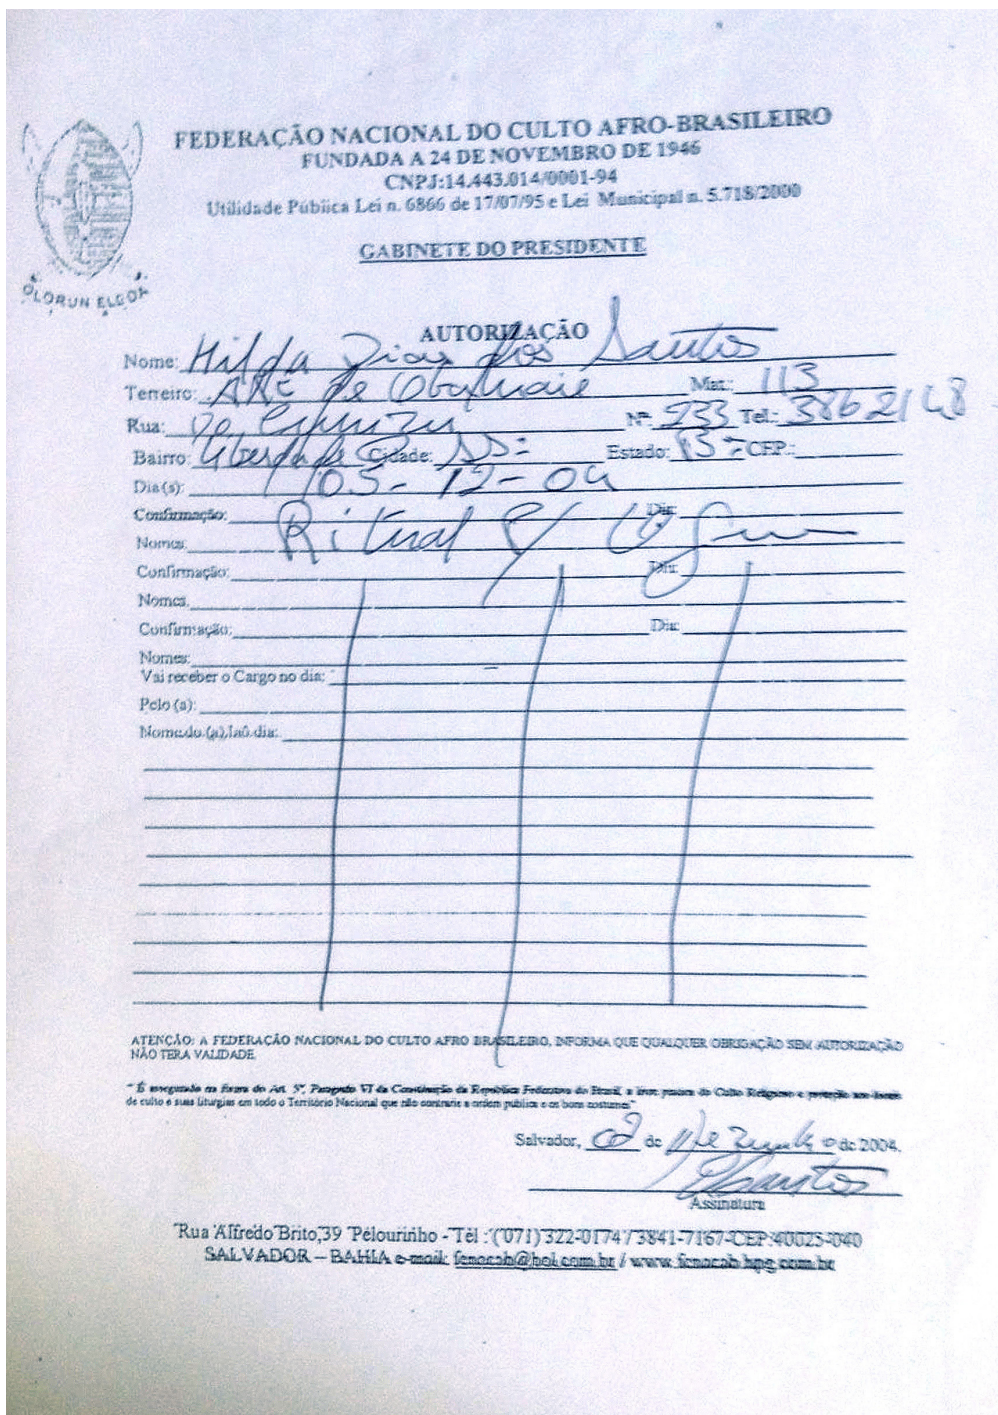 FEDERAÇÃO NACIONAL DO CULTO AFRO-BRASILEIRO
FUNDADA A 24 DE NOVEMBRO DE 1946
CNPJ:14.443.014/0001-94
Utilidade Pública Lei n. 6866 de 17/07/95 e Lei Municipal n. 5.718/2000
OLORUN ELEDA
GABINETE DO PRESIDENTE
AUTORIZAÇÃO
Nome: Hilda Dias dos Santos
Terreiro: AXE de Obaluaie Mat.: 113
Rua: Nº 233 Tel.: 3862148
Bairro: Liberdade Cidade: SS- Estado: B CEP.:
Dia(s): 05-12-04
Confirmação: Dia:
Nomes: Ritual P/ Ogum
Confirmação: Dia:
Nomes.
Confirmação: Dia:
Nomes:
Vai receber o Cargo no dia:
Pelo (a):
Nome do (a) Iaô dia:
ATENÇÃO: A FEDERAÇÃO NACIONAL DO CULTO AFRO BRASILEIRO, INFORMA QUE QUALQUER OBRIGAÇÃO SEM AUTORIZAÇÃO
NÃO TERA VALIDADE.
" É assegurado na forma do Art. 5º, Paragrafo VI da Constituição da República Federativa do Brasil, a livre pratica do Culto Religioso e proteção aos locais
de culto e suas liturgias em todo o Território Nacional que não contrarie a ordem pública e os bons costumes"
Salvador, 02 de Dezembro de 2004.
Santos
Assinatura
Rua Alfredo Brito,39 Pelourinho - Tel :(071)322-0174/3841-7167-CEP:40025-040
SALVADOR – BAHIA e-mail: fenacab@bol.com.br / www.fenacab.hpg.com.br